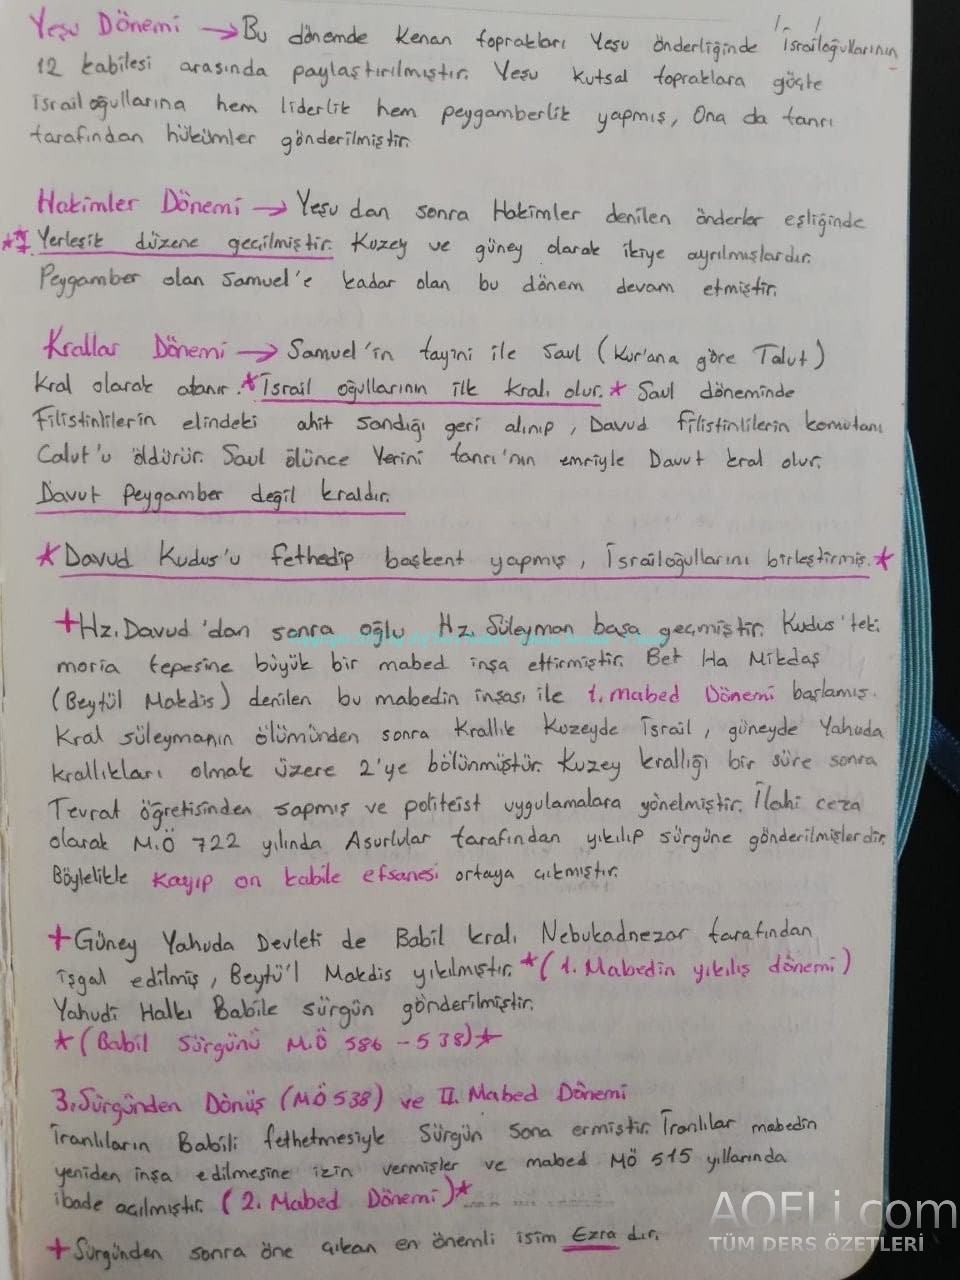 Yeşu Dönemi → Bu dönemde Kenan toprakları Yeşu önderliğinde İsrailoğullarının
12 kabilesi arasında paylaştırılmıştır. Yeşu kutsal topraklara göçte
İsrailoğullarına hem liderlik hem peygamberlik yapmış, Ona da tanrı
tarafından hükümler gönderilmiştir.
Hakimler Dönemi → Yeşu dan sonra Hakimler denilen önderler eşliğinde
** Yerleşik düzene geçilmiştir. Kuzey ve güney olarak ikiye ayrılmışlardır.
Peygamber olan Samuel'e kadar olan bu dönem devam etmiştir.
Krallar Dönemi → Samuel'in tayini ile Saul (Kur'ana göre Talut)
Kral olarak atanır. * İsrail oğullarının ilk kralı olur. * Saul döneminde
Filistinlilerin elindeki ahit sandığı geri alınıp, Davud filistinlilerin komutanı
Calut'u öldürür. Saul ölünce Yerini tanrı'nın emriyle Davut kral olur.
Davut Peygamber değil kraldır.
* Davud Kudüs'u fethedip başkent yapmış, İsrailoğullarını birleştirmiş. *
+ Hz. Davud'dan sonra oğlu Hz. Süleyman başa geçmiştir. Kudüs'teki
moria tepesine büyük bir mabed inşa ettirmiştir. Bet Ha Mikdaş
(Beytül Makdis) denilen bu mabedin inşası ile 1. mabed Dönemi başlamış.
Kral süleymanın ölümünden sonra Krallık Kuzeyde İsrail, güneyde Yahuda
krallıkları olmak üzere 2'ye bölünmüştür. Kuzey krallığı bir süre sonra
Tevrat öğretisinden sapmış ve politeist uygulamalara yönelmiştir. İlahi ceza
olarak M.Ö 722 yılında Asurlular tarafından yıkılıp sürgüne gönderilmişlerdir.
Böylelikle kayıp on kabile efsanesi ortaya çıkmıştır.
+ Güney Yahuda Devleti de Babil kralı Nebukadnezar tarafından
işgal edilmiş, Beytü'l Makdis yıkılmıştır. * (1. Mabedin yıkılış dönemi)
Yahudi Halkı Babile sürgün gönderilmiştir.
* (Babil Sürgünü M.Ö 586 - 538) *
3. Sürgünden Dönüş (MÖ 538) ve II. Mabed Dönemi
İranlıların Babili fethetmesiyle Sürgün sona ermiştir. İranlılar mabedin
yeniden inşa edilmesine izin vermişler ve mabed MÖ 515 yıllarında
ibade açılmıştır. (2. Mabed Dönemi) *
+ Sürgünden sonra öne çıkan en önemli isim Ezra dır.
AOFLi.com
TÜM DERS ÖZETLERİ